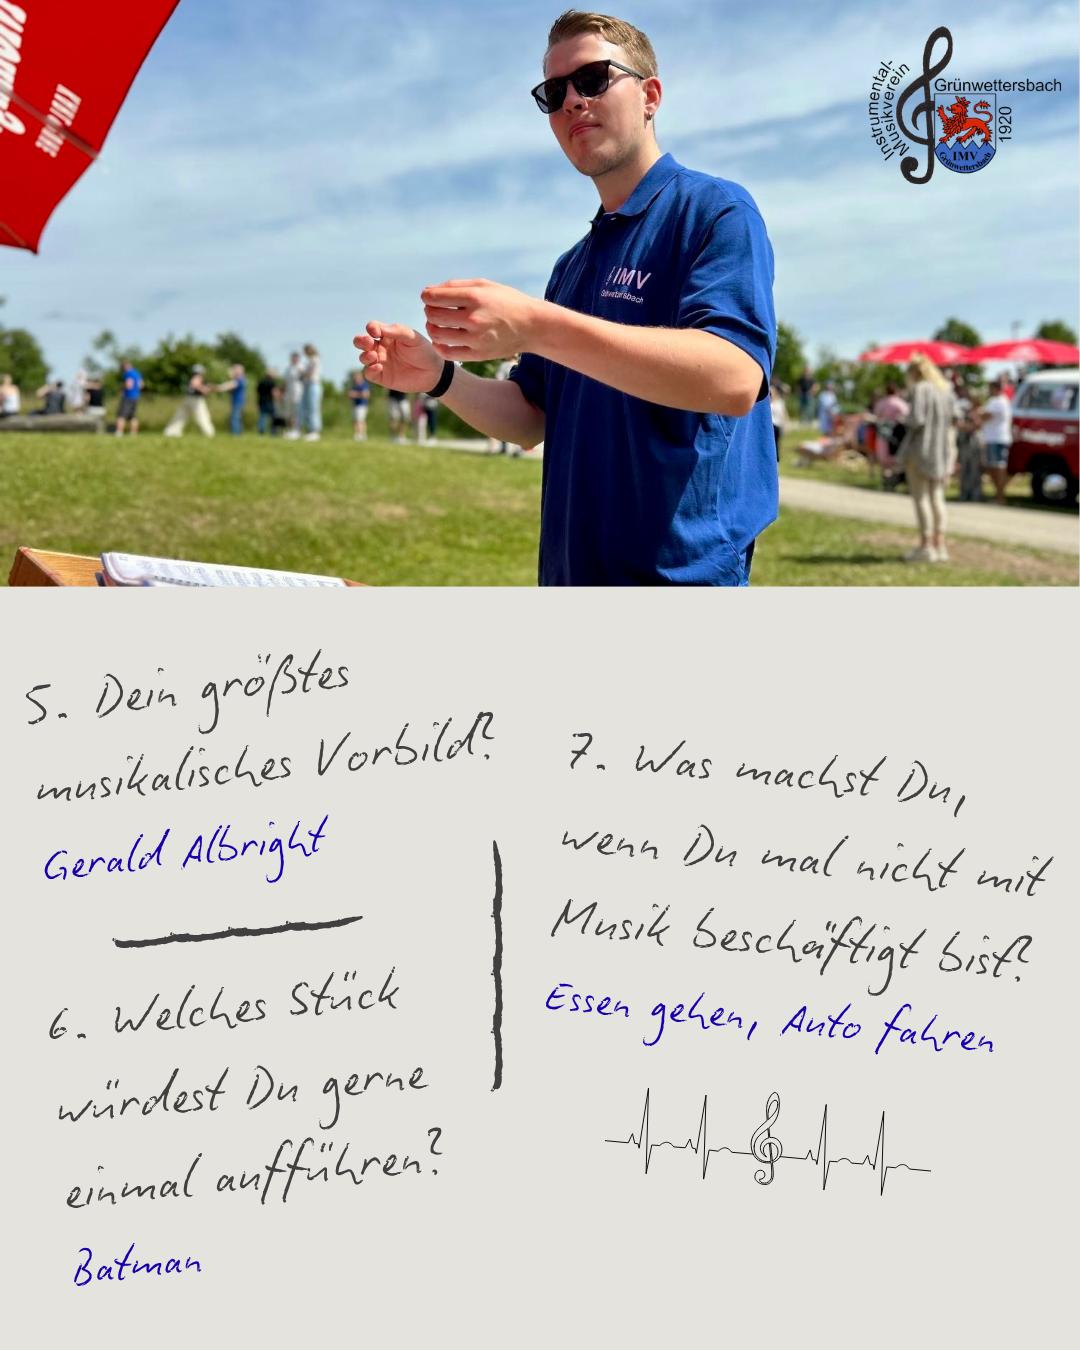 Instrumental-
Musikverein
Grünwettersbach
1920
IMV
Grünwettersbach
IMV
Grünwettersbach
5. Dein größtes
musikalisches Vorbild?
Gerald Albright
6. Welches Stück
würdest Du gerne
einmal aufführen?
Batman
7. Was machst Du,
wenn Du mal nicht mit
Musik beschäftigt bist?
Essen gehen, Auto fahren